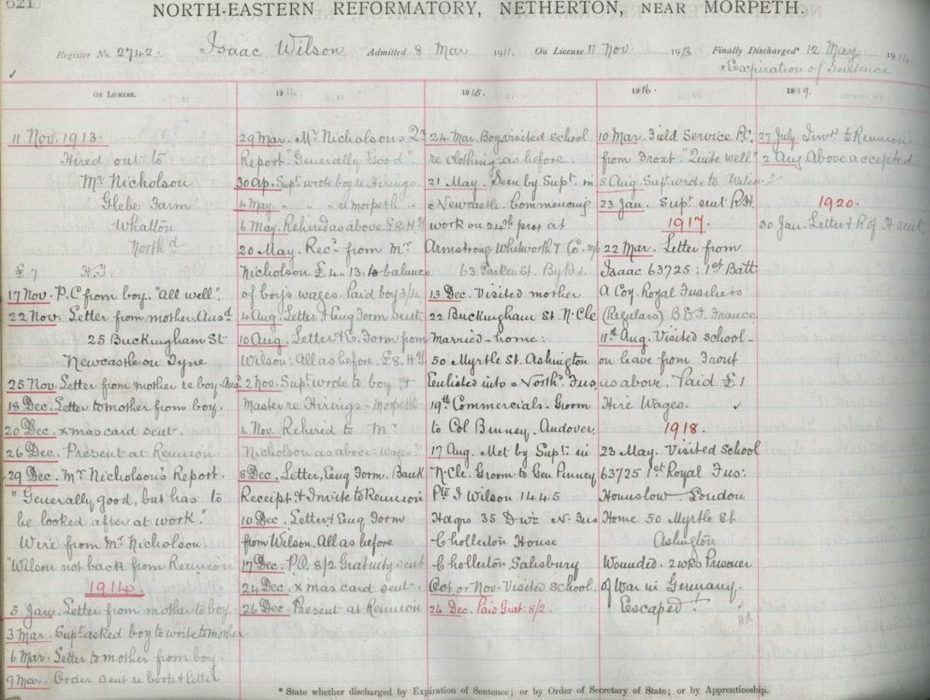 621
NORTH-EASTERN REFORMATORY, NETHERTON, NEAR MORPETH.
Register No. 2742. Isaac Wilson Admitted 8 Mar 1911. On License 11 Nov 1913 Finally Discharged* 12 May 191
*Expiration of Sentence
ON LICENSE.
11 Nov. 1913.
Hired out to
Mr Nicholson
Glebe Farm
Whalton
North'd
£7 H.Y
17 Nov. P.C from boy. "All well".
22 Nov. Letter from mother. Ansd
25 Buckingham St
Newcastle on Tyne
25 Nov. Letter from mother re boy. Ans.
18 Dec. Letter to mother from boy.
20 Dec. xmas card sent.
26 Dec. Present at Reunion
29 Dec. Mr Nicholson's Report.
"Generally good, but has to
be looked after at work."
Wire from Mr Nicholson.
"Wilson not back from Reunion
1914.
5 Jan. Letter from mother to boy.
3 Mar. Supt asked boy to write to mother
6 Mar. Letter to mother from boy.
9 Mar. Order sent re book & letter
1914.
29 Mar. Mr Nicholson's
Report. "Generally Good".
30 Ap. Supt wrote boy re Hirings
4 May. " " " re Morpeth "
6 May. Rehired as above £8. H.Y
20 May. Recd from Mr
Nicholson £4.. 13.. balance
of boy's wages. Paid boy 3/
4 Aug. Letter & Enq Form sent
10 Aug. Letter & E. Form from
Wilson: All as before. £8. H.Y
2 Nov. Supt wrote to boy &
Master re Hirings - Morpeth
4 Nov. Rehired to Mr
Nicholson as above: Wages?
5 Dec. Letter, Enq Form. Bank
Receipt & Invite to Reunion
10 Dec. Letter & Enq Form
from Wilson. All as before
17 Dec. P.O. 8/2 Gratuity sent
24 Dec. xmas card sent.
26 Dec. Present at Reunion
1915.
24 Mar. Boy visited school
re clothing as before
21 May. Seen by Supt in
Newcastle. Commencing
work on 24th prox at
Armstrong Whitworth & Co.
63 Parker St. Byker.
13 Dec. Visited mother
22 Buckingham St. N.Cle
Married - home:
50 Myrtle St. Ashington
Enlisted into North'd Fus.
19th Commercials. Groom
to Col Binney. Andover.
17 Aug. Met by Supt: in
N.Cle. Groom to Gen Pinney
Pte I Wilson 1445
Hdqrs 35 Divn N. Fus
Cholderton House
Cholderton Salisbury
Oct. or Nov. Visited School.
26 Dec. Paid Grat. 8/2.
1916.
10 Mar. Field Service P.C.
from Front. "Quite well"
5 Aug. Supt wrote to Wilson
23 Jan. Supt sent R.H.
1917.
22 Mar. Letter from
Isaac 63725: 1st Batt
A Coy. Royal Fusiliers
(Regulars) B.E.F. France
11th Aug. Visited school -
on leave from Front
as above. Paid £1
Hire Wages.
1918.
23 May. Visited School
63725 1st Royal Fus:
Hounslow London
Home 50 Myrtle St
Ashington
Wounded. 2 wks Prisoner
of War in Germany.
Escaped!
1919.
27 July. Invt to Reunion.
2 Aug Above accepted
1920.
30 Jan. Letter & R of H sent
* State whether discharged by Expiration of Sentence; or by Order of Secretary of State; or by Apprenticeship.